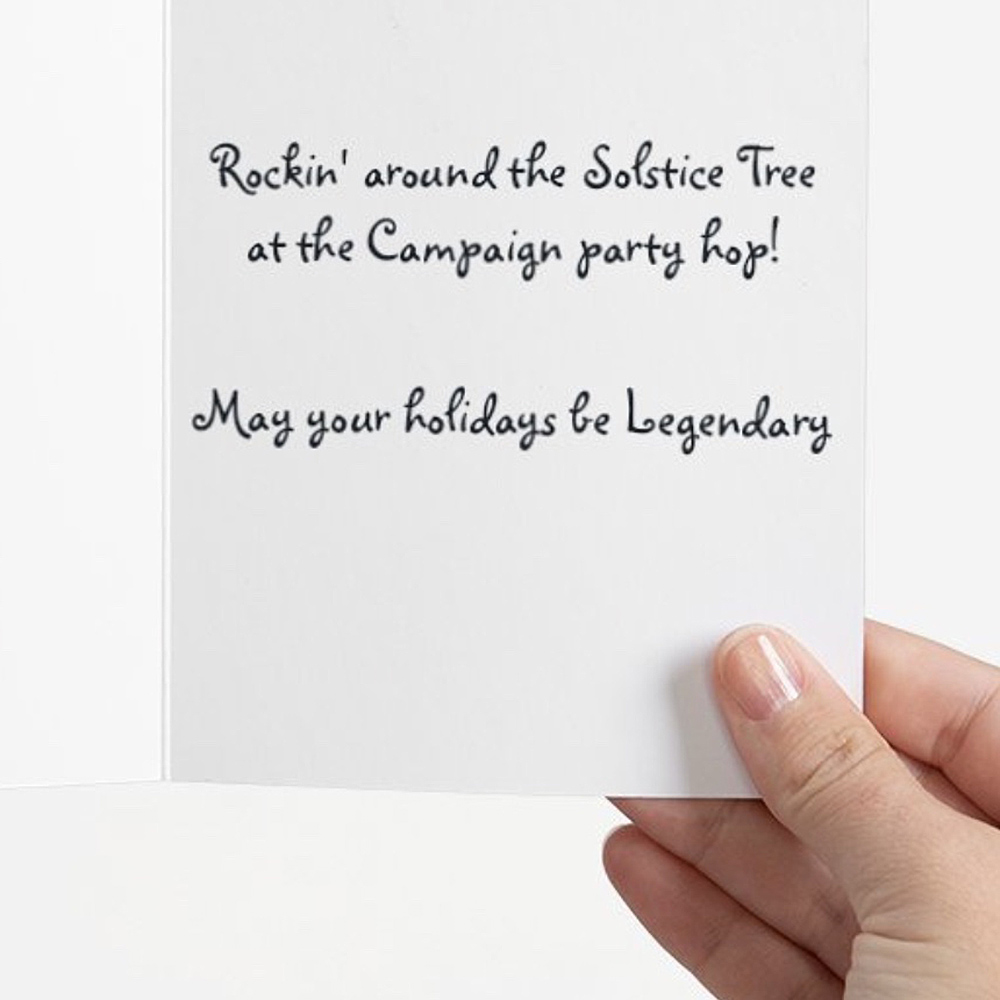 Rockin' around the Solstice Tree
at the Campaign party hop!
May your holidays be Legendary